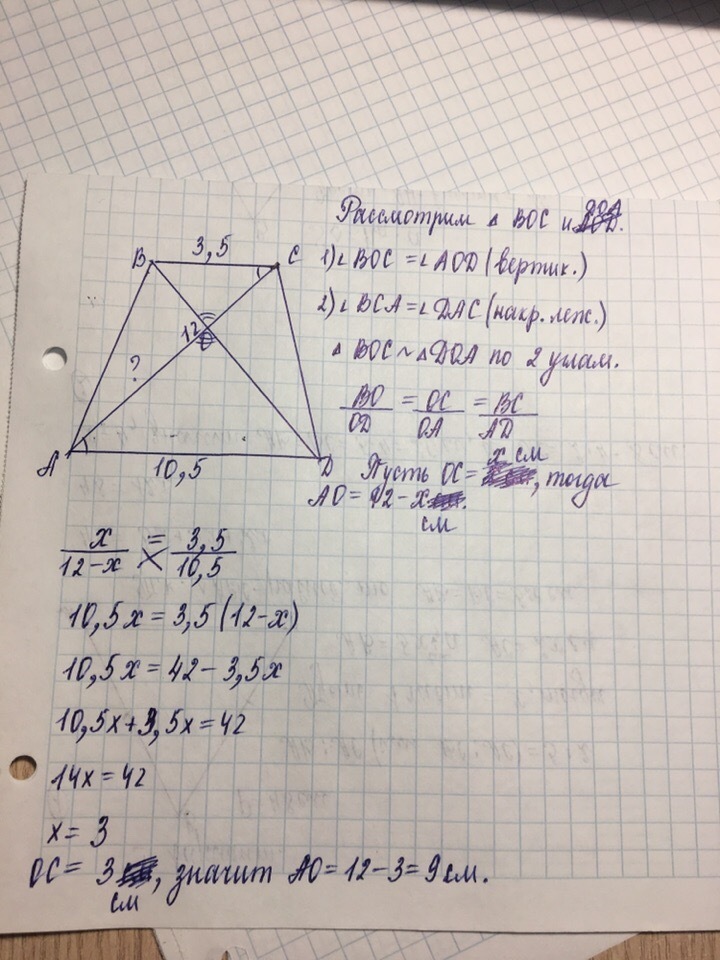 Рассмотрим △ BOC и DOA.
B 3,5 C
1) ∠ BOC = ∠ AOD (вертик.)
2) ∠ BCA = ∠ DAC (накр. леж.)
12
O
?
△ BOC ~ △ DOA по 2 углам.
BO/OD = OC/OA = BC/AD
A 10,5 D
Пусть OC = x см, тогда
AO = 12 - x см
x/12-x = 3,5/10,5
10,5x = 3,5 (12-x)
10,5x = 42 - 3,5x
10,5x + 3,5x = 42
14x = 42
x = 3
OC = 3 см, значит AO = 12 - 3 = 9 см.